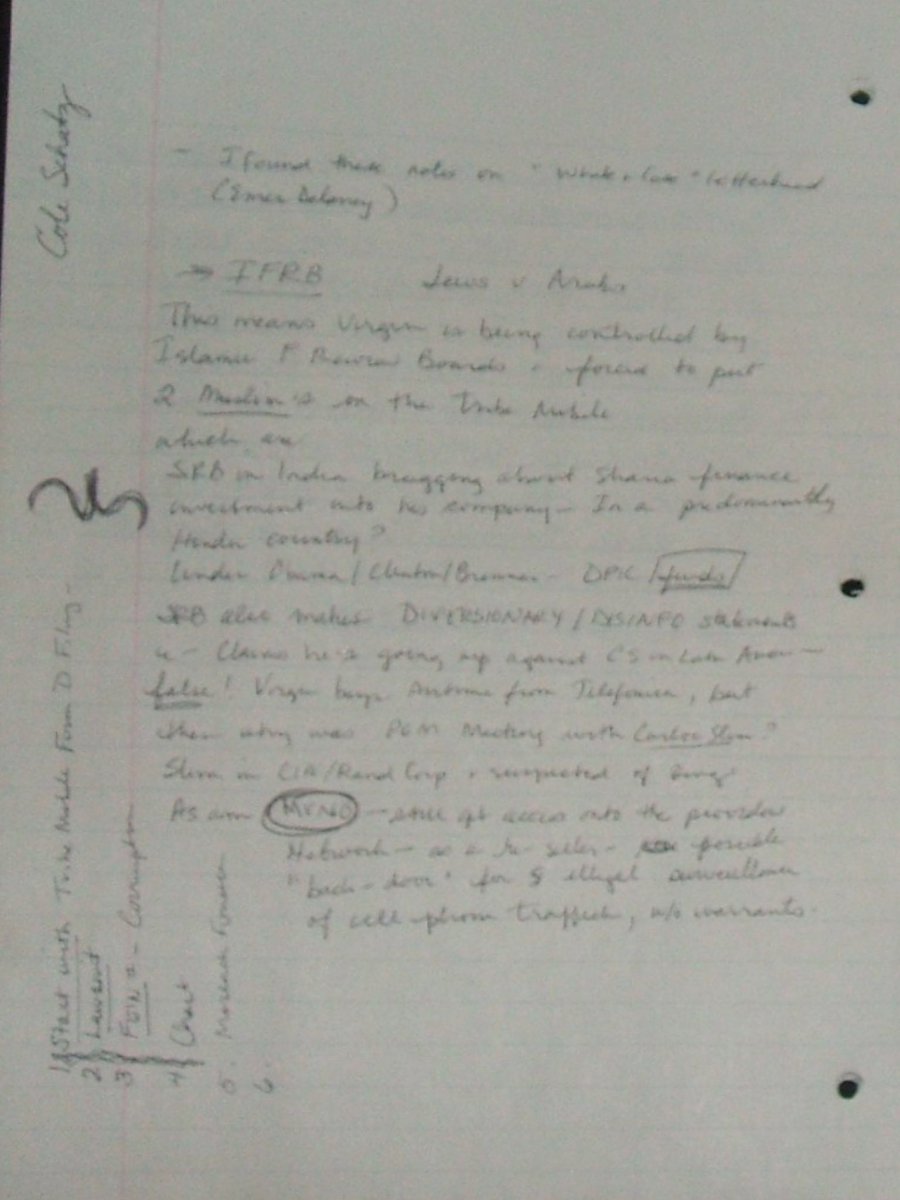 - I found these notes on "White & Case" letterhead
(Emer Delaney)
→ IFRB Jews v Arabs
This means Virgin is being controlled by
Islamic F Review Boards & forced to put
2 Muslim's on the Tribe Mobile
which are
SRB in India bragging about Sharia finance
investment into his company - In a predominantly
Hindu country?
Under Obama/Clinton/Brennan - OPIC funds
SRB also makes DIVERSIONARY/DISINFO statements
ie - Claims he's going up against CS in Latin Amer -
false! Virgin buys Airtime from Telefonica, but
then why was PGM Meeting with Carlos Slim?
Slim in CIA/Rand Corp & suspected of
As an MVNO - still get access into the provider
Network - as a re-seller - possible
"back-door" for illegal surveillance
of cell phone traffick, w/o warrants.
Cole Schatz
1) Start with Tribe Mobile Form D Filing -
2 Lawsuit
3 FOIA - Corruption
4 Chart
5. Mossack Fonseca
6.